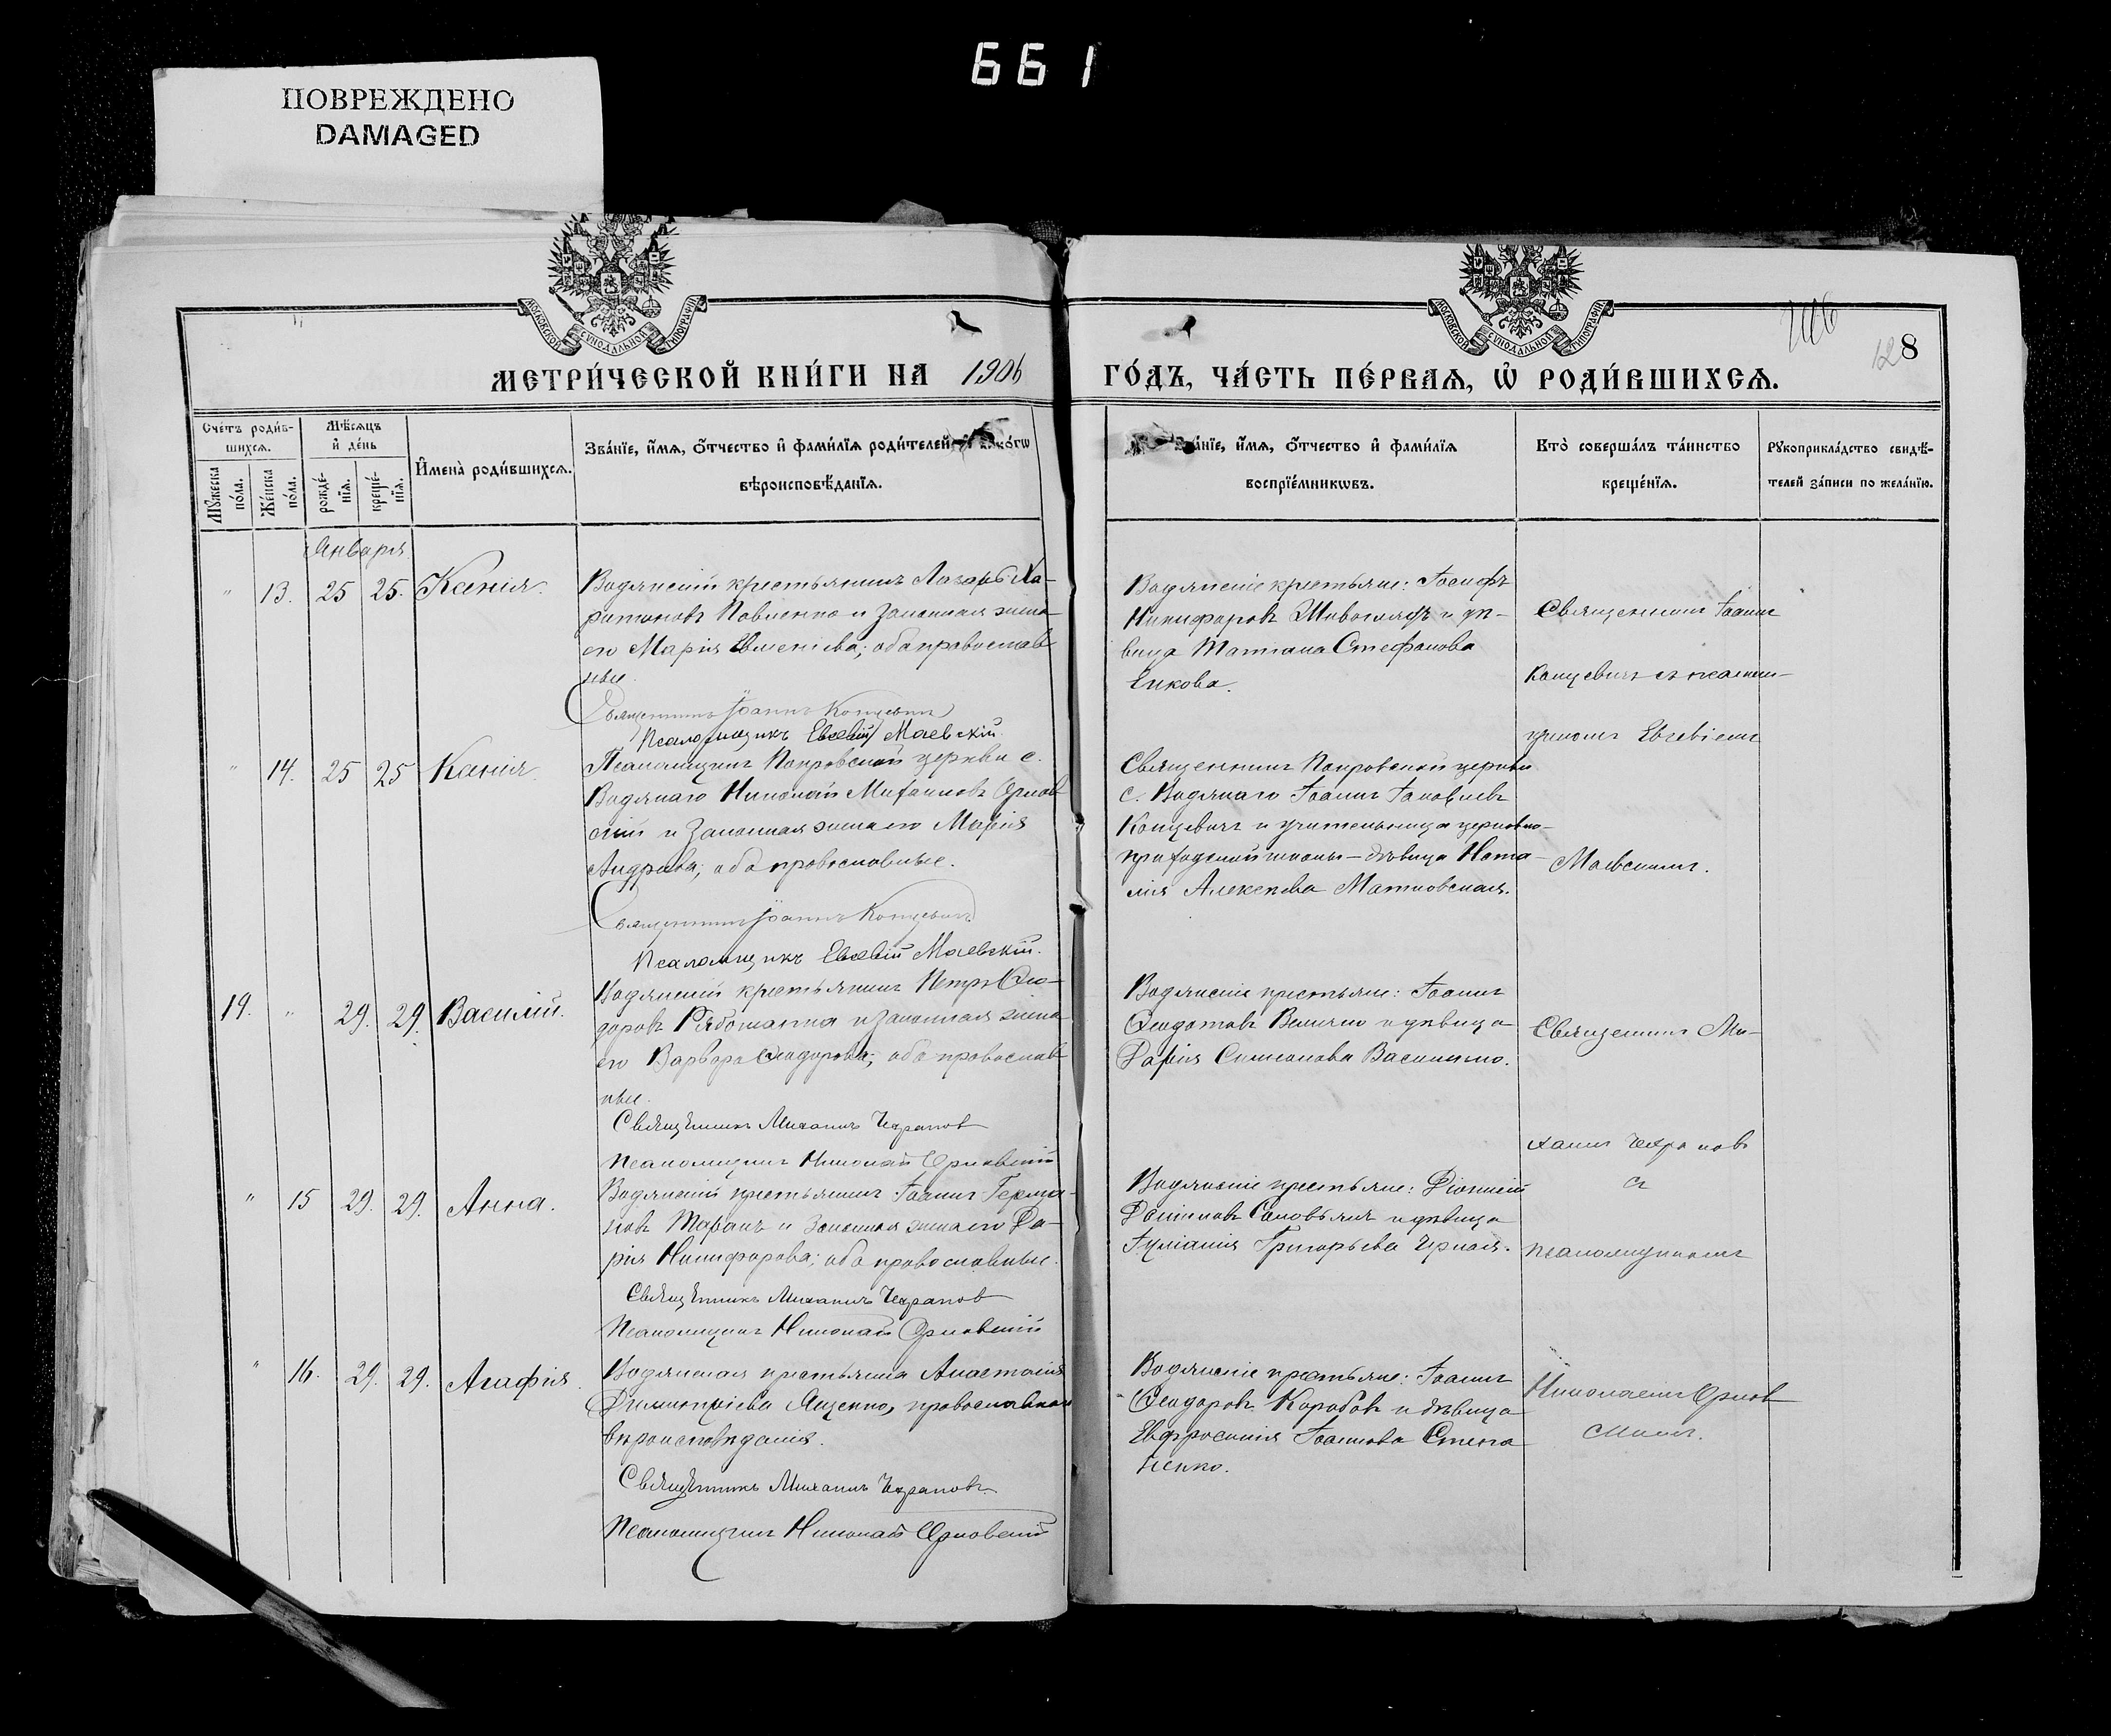 661
ПОВРЕЖДЕНО
DAMAGED
МОСКОВСКОЙ СѴНОДАЛЬНОЙ ТИПОГРАФІИ
МОСКОВСКОЙ СѴНОДАЛЬНОЙ ТИПОГРАФІИ
128
МЕТРИ́ЧЕСКОЙ КНИ́ГИ НА 1906 ГО́ДЪ, ЧА́СТЬ ПЕ́РВАЯ, Ѡ҆ РОДИ́ВШИХСЯ.
Сче́тъ роди́в-
шихся.
Мꙋ́жеска по́ла.
Же́нска по́ла.
Мѣ́сяцъ
и҆ де́нь
рожде́-
нїя.
креще́-
нїя.
И҆мена̀ роди́вшихся.
Зва́нїе, и҆́мя, ѻ҆́тчество и҆ фами́лїя роди́телей
вѣроисповѣ́данїя.
зва́нїе, и҆́мя, ѻ҆́тчество и҆ фами́лїя
воспрїе́мникѡвъ.
Кто̀ соверша́лъ та́инство
креще́нїя.
Рꙋкоприкла́дство свидѣ́-
телей за́писи по жела́нїю.
Января
" 13. 25 25. Ксенія.
Водянскій крестьянинъ Лазарь Ха-
ритоновъ Павленко и законная жена
его Марія Евменіева; оба православ
ные.
Священникъ Іоаннъ Концевичъ
Псаломщикъ Евсевій Маевскій
Водянскіе крестьяне: Іосифъ
Никифоровъ и дѣ-
вица Татіана Стефанова
Енкова.
Священникъ Іоаннъ
Концевичъ съ псалом-
щикомъ Евсевіемъ
Маевскимъ.
" 14. 25 25 Ксенія.
Псаломщикъ Покровской церкви с.
Водянаго Николай Михаиловъ Орлов
скій и законная жена его Марія
Андреева; оба православные.
Священникъ Іоаннъ Концевичъ
Псаломщикъ Евсевій Маевскій.
Священникъ Покровской церкви
с. Водянаго Іоаннъ Іаковлевъ
Концевичъ и учительница церковно-
приходской школы – дѣвица Ната-
лія Алексѣева Матковская.
19. " 29. 29. Василій.
Водянскій крестьянинъ Петръ Ѳео-
доровъ Рябошапка и законная жена
его Варвара Ѳеодорова; оба православ
ные.
Священникъ Михаилъ Чехрановъ
Псаломщикъ Николай Орловскій
Водянскіе крестьяне: Іоаннъ
Ѳеодотовъ Величко и дѣвица
Дарія Симеонова Василенко.
Священникъ Ми-
хаилъ Чехрановъ
съ
псаломщикомъ
Николаемъ Орлов
скимъ.
" 15 29. 29. Анна.
Водянскій крестьянинъ Іоаннъ Герма-
новъ Таранъ и законная жена его Да-
рія Никифорова; оба православные.
Священникъ Михаилъ Чехрановъ
Псаломщикъ Николай Орловскій
Водянскіе крестьяне: Діонисій
Даніиловъ Соловьянъ и дѣвица
Іуліанія Григорьева Черная.
" 16. 29. 29. Агафія.
Водянская крестьянка Анастасія
Димитріева Яценко, православнаго
вѣроисповѣданія.
Священникъ Михаилъ Чехрановъ
Псаломщикъ Николай Орловскій
Водянскіе крестьяне: Іоаннъ
Ѳеодоровъ Коробовъ и дѣвица
Евфросинія Іоаннова Степа
ненко.